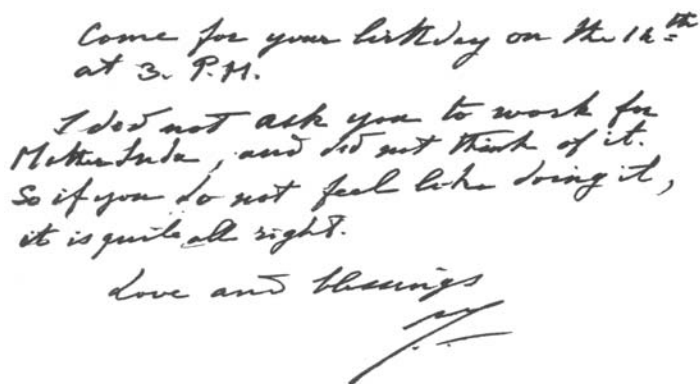 Come for your birthday on the 12th
at 3. P.M.
I did not ask you to work for
Mother India, and did not think of it.
So if you do not feel like doing it,
it is quite all right.
Love and blessings